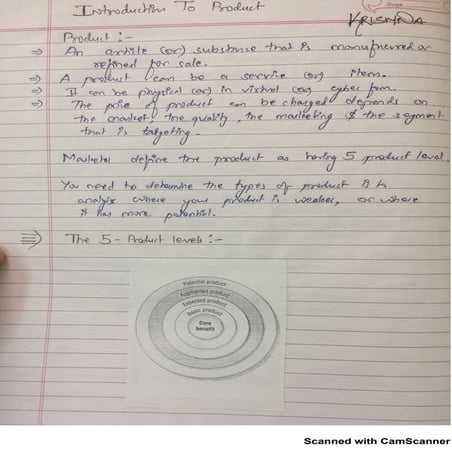 Introduction To Product
KRISHNA
Product :-
⇒ An article (or) substance that is manufactured or
refined for sale.
⇒ A product can be a service (or) item.
⇒ It can be physical (or) in virtual (or) cyber form.
⇒ The price of product can be charged depends on
the market, the quality, the marketing & the segment
that is targeting.
Marketer define the product as having 5 product level.
You need to determine the types of product is to
analyze where your product is weaker, or where
it has more potential.
⇒ The 5 - Product levels :-
Potential product
Augmented product
Expected product
Basic product
Core
benefit
Scanned with CamScanner